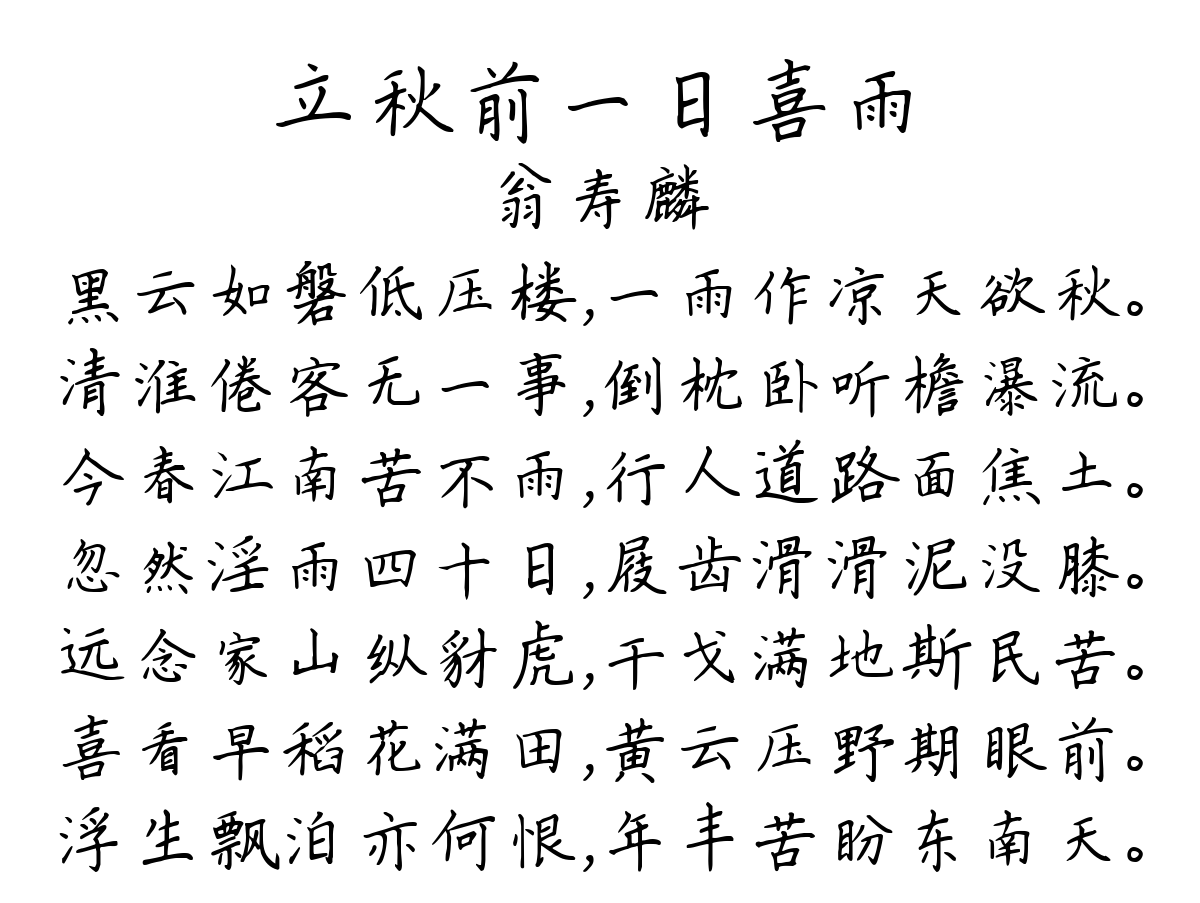 立秋前一日喜雨
翁寿麟
黑云如磐低压楼,一雨作凉天欲秋。
清淮倦客无一事,倒枕卧听檐瀑流。
今春江南苦不雨,行人道路面焦土。
忽然淫雨四十日,屐齿滑滑泥没膝。
远念家山纵豺虎,干戈满地斯民苦。
喜看早稻花满田,黄云压野期眼前。
浮生飘泊亦何恨,年丰苦盼东南天。